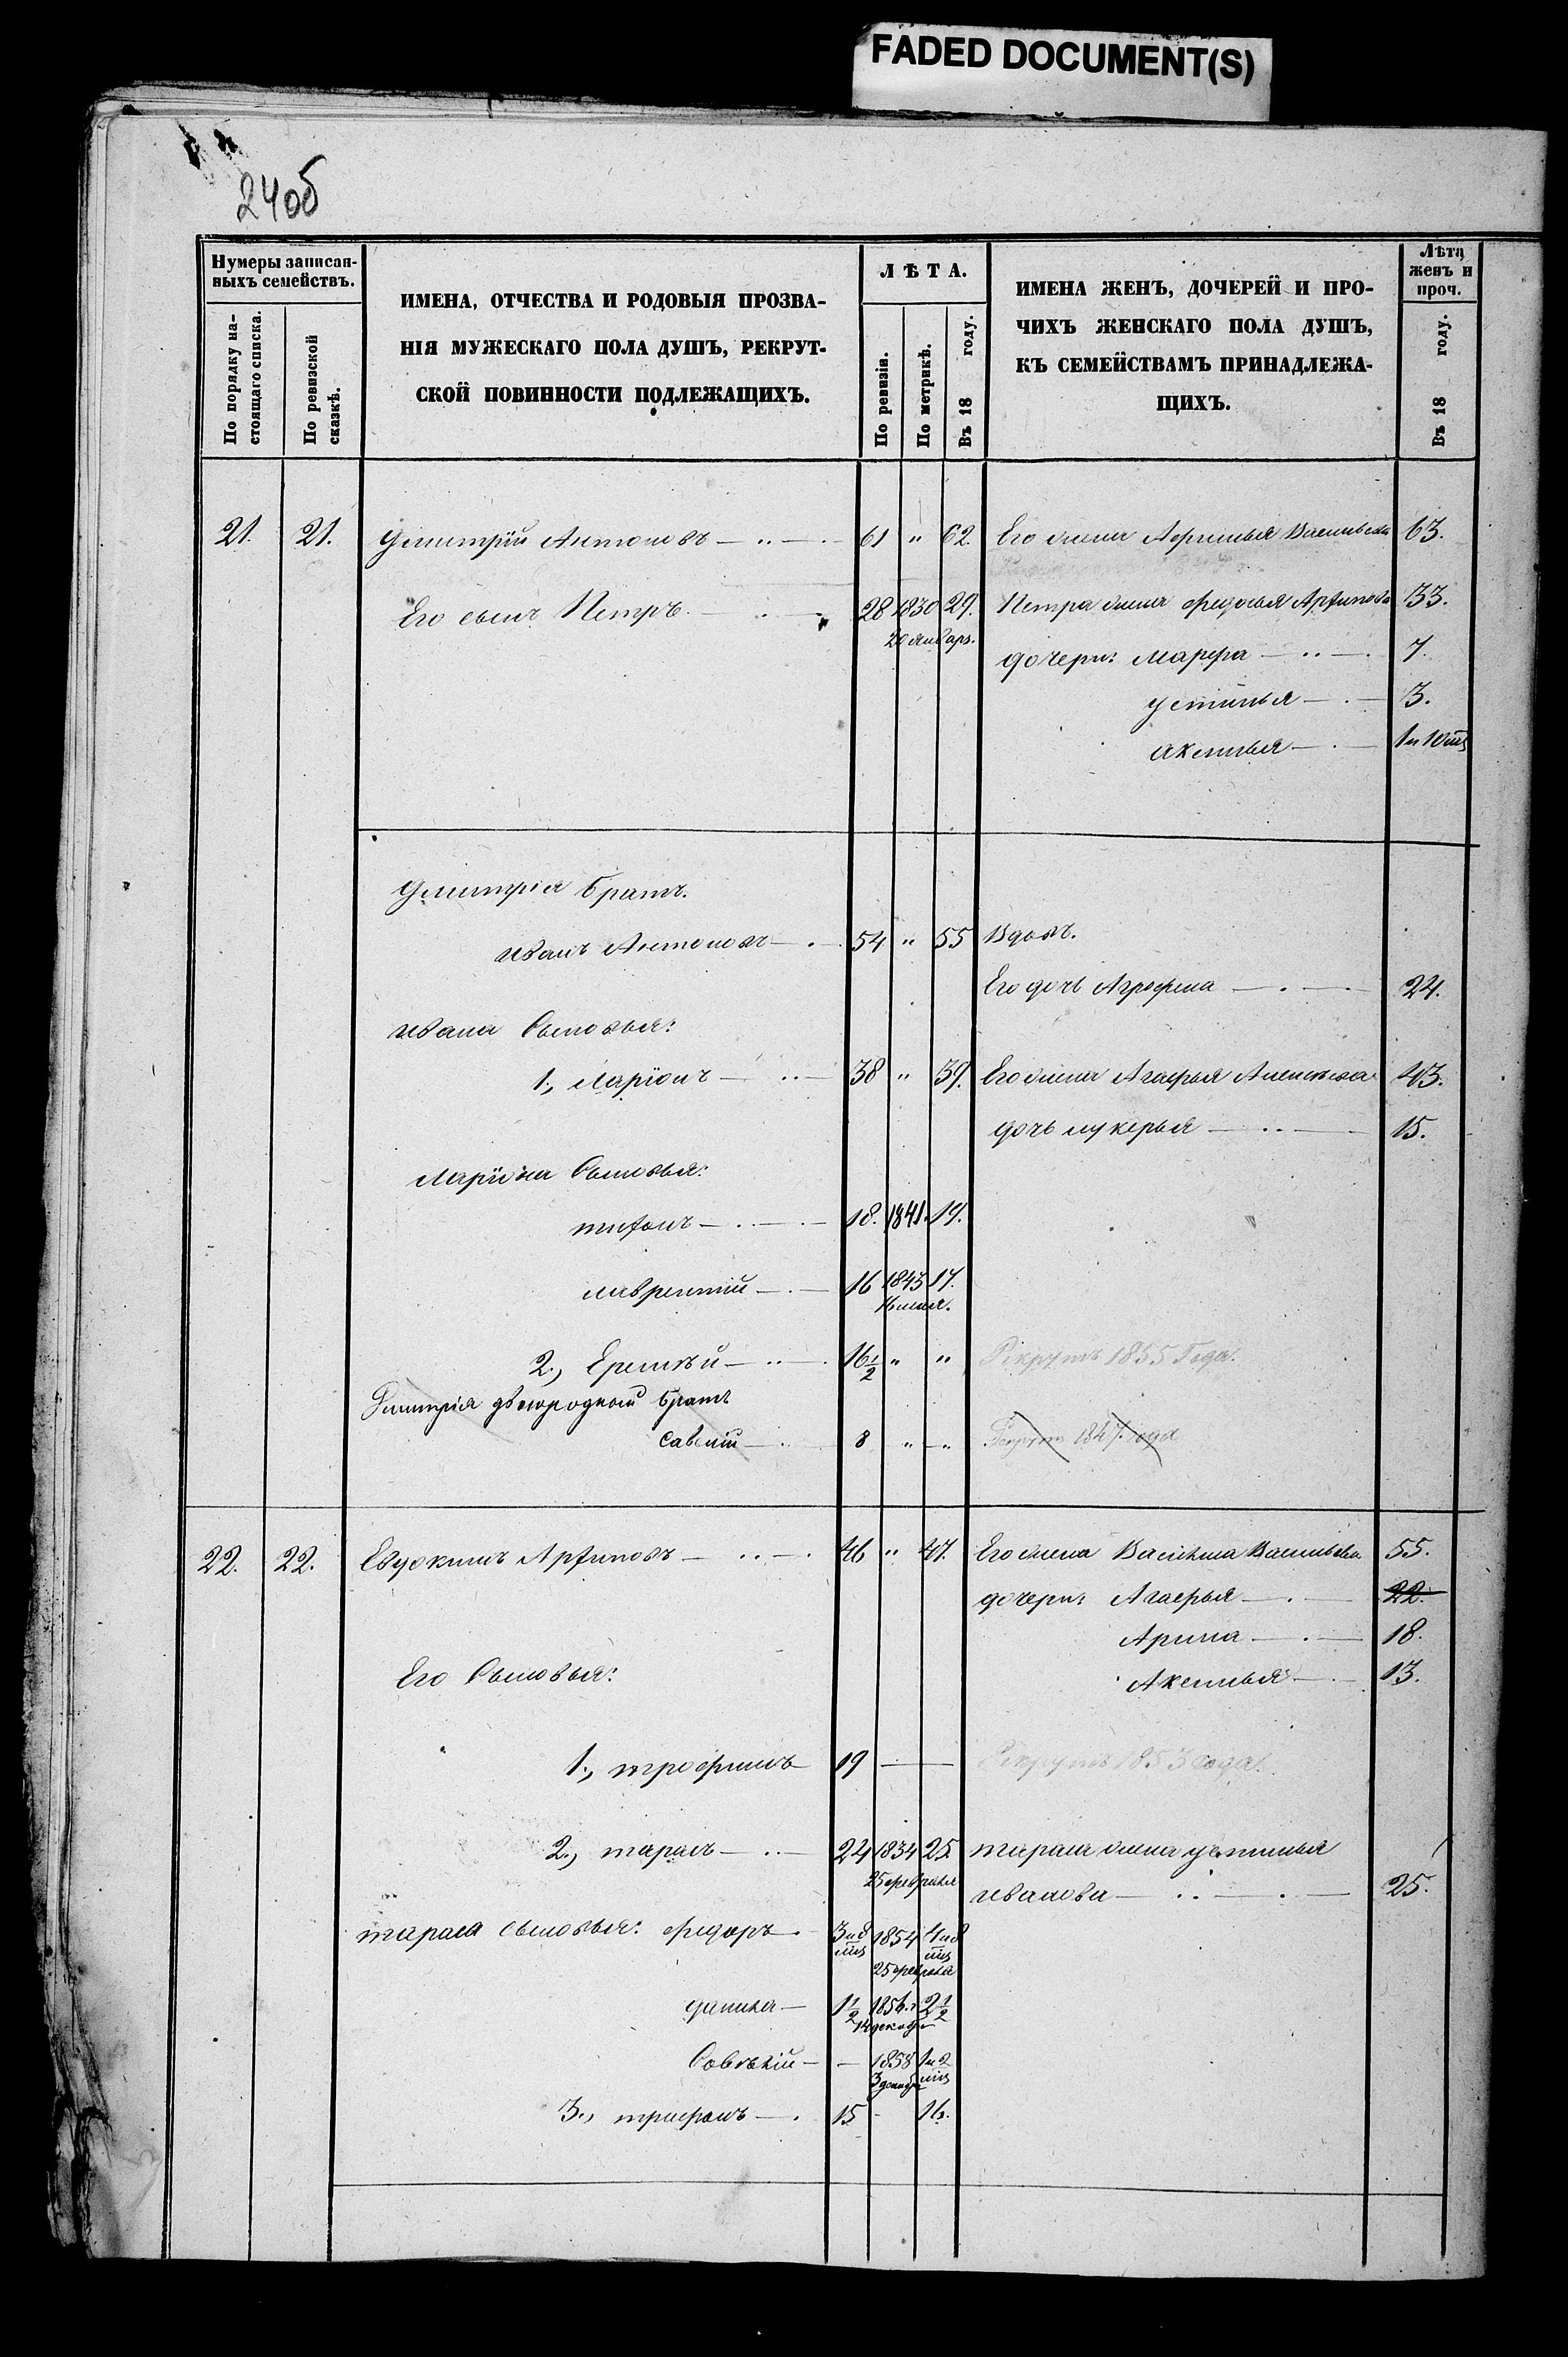 FADED DOCUMENT(S)
24об
Нумеры записан-
ныхъ семействъ.
По порядку на-
стоящаго списка.
По ревизской
сказкѣ.
ИМЕНА, ОТЧЕСТВА И РОДОВЫЯ ПРОЗВА-
НІЯ МУЖЕСКАГО ПОЛА ДУШЪ, РЕКРУТ-
СКОЙ ПОВИННОСТИ ПОДЛЕЖАЩИХЪ.
ЛѢТА.
По ревизіи.
По метрикѣ.
Въ 18 году.
ИМЕНА ЖЕНЪ, ДОЧЕРЕЙ И ПРО-
ЧИХЪ ЖЕНСКАГО ПОЛА ДУШЪ,
КЪ СЕМЕЙСТВАМЪ ПРИНАДЛЕЖА-
ЩИХЪ.
Лѣта
женъ и
проч.
Въ 18 году.
21. 21. Дмитрій Антоновъ 61 " 62. Его жена Афимья Васильева 63.
Его сынъ Петръ 28 1830 29. Петра жена Федосья Архипова 33.
20 январ.
дочери: Марфа 7.
устинья 3.
аксинья 1 и 10 мц
Дмитрія Братъ.
иванъ Антоновъ 54 " 55 Вдовъ.
Его дочь Аграфена 24.
ивана Сыновья:
1., Ларіонъ 38 " 39. Его жена Агафья Алексѣева 43.
дочь лукерья 15.
Ларіона Сыновья:
тихонъ 18. 1841. 19.
лаврентій 16 1843 17.
2., Еремѣй 16 1/2 " " Рекрутъ 1855 Года.
Дмитрія двоюродный братъ
Савелій 8 " " Рекрутъ 1847. года
22. 22. Евдокимъ Архиповъ 46 " 47. Его жена Василиса Васильева 55.
дочери: Агафья 22.
Арина 18.
Его Сыновья: Аксинья 13.
1., трофимъ 19 Рекрутъ 1853 года.
2., тарасъ 24 1834 25. тараса жена устинья
25 февраля ивановa 25.
тараса сыновья: федоръ 3 и 8 мц 1854 4 и 8 мц
25 февраля
данила 1 1/2 1856. 2 1/2
14 декабря
Савелій 1858 1 и 2 мц
3 декабр
3., трифонъ 15 16.